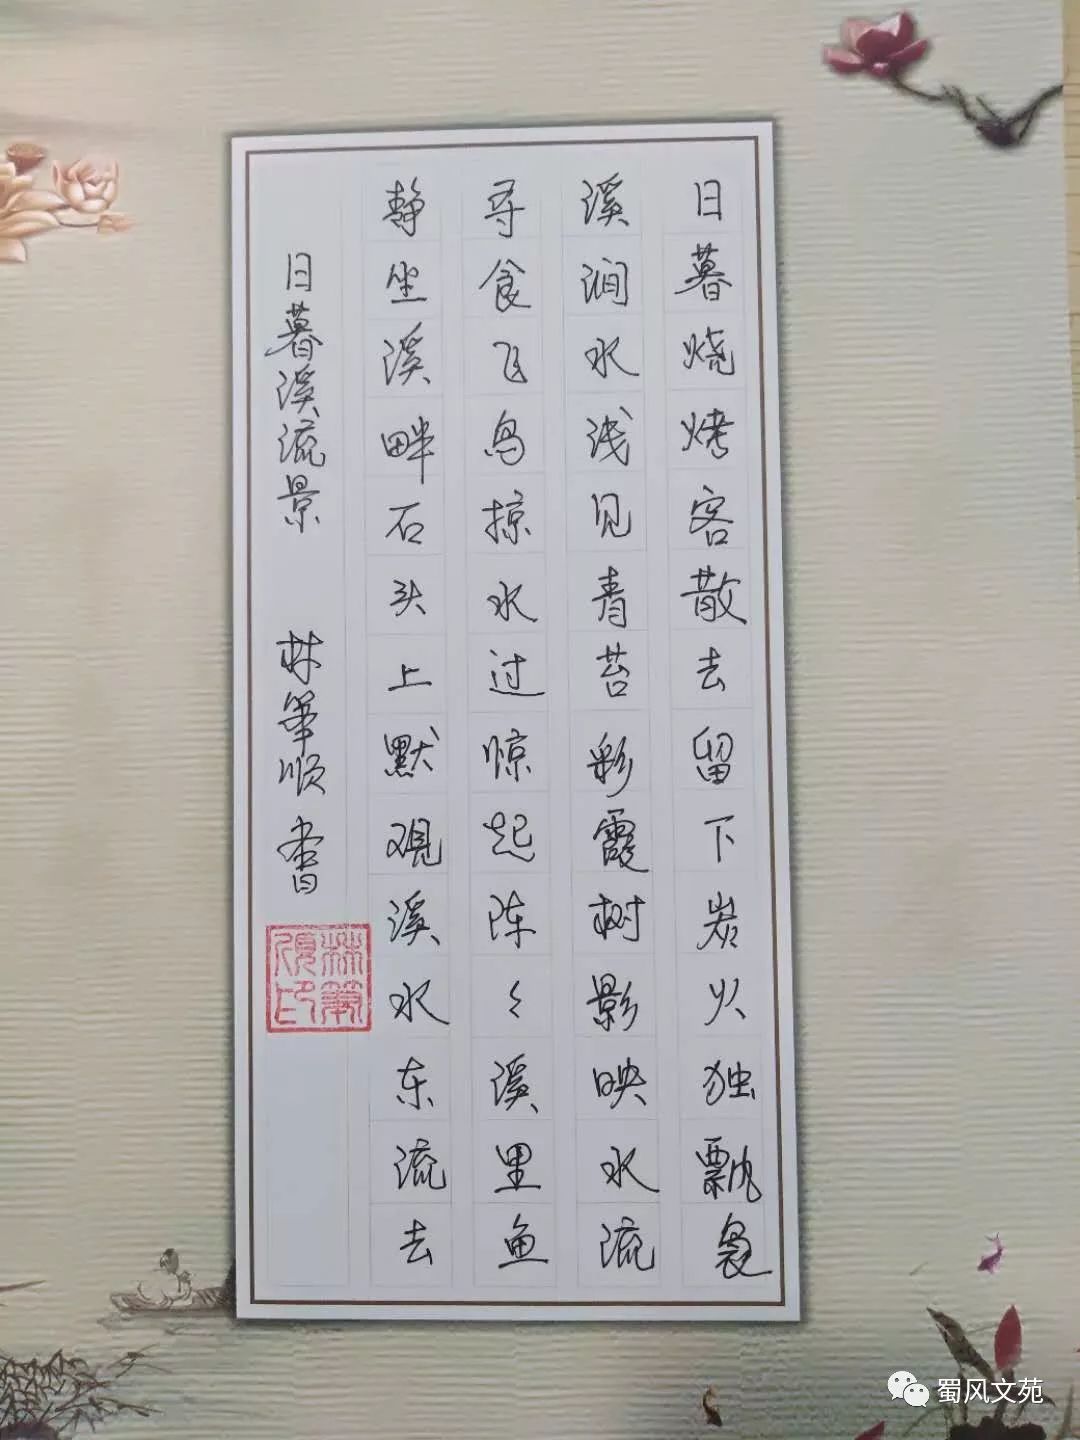 日暮烧烤客散去留下炭火独飘袅
溪涧水浅见青苔彩霞树影映水流
寻食飞鸟掠水过惊起阵々溪里鱼
静坐溪畔石头上默观溪水东流去
日暮溪流景 林笔顺书
林笔顺印
蜀风文苑